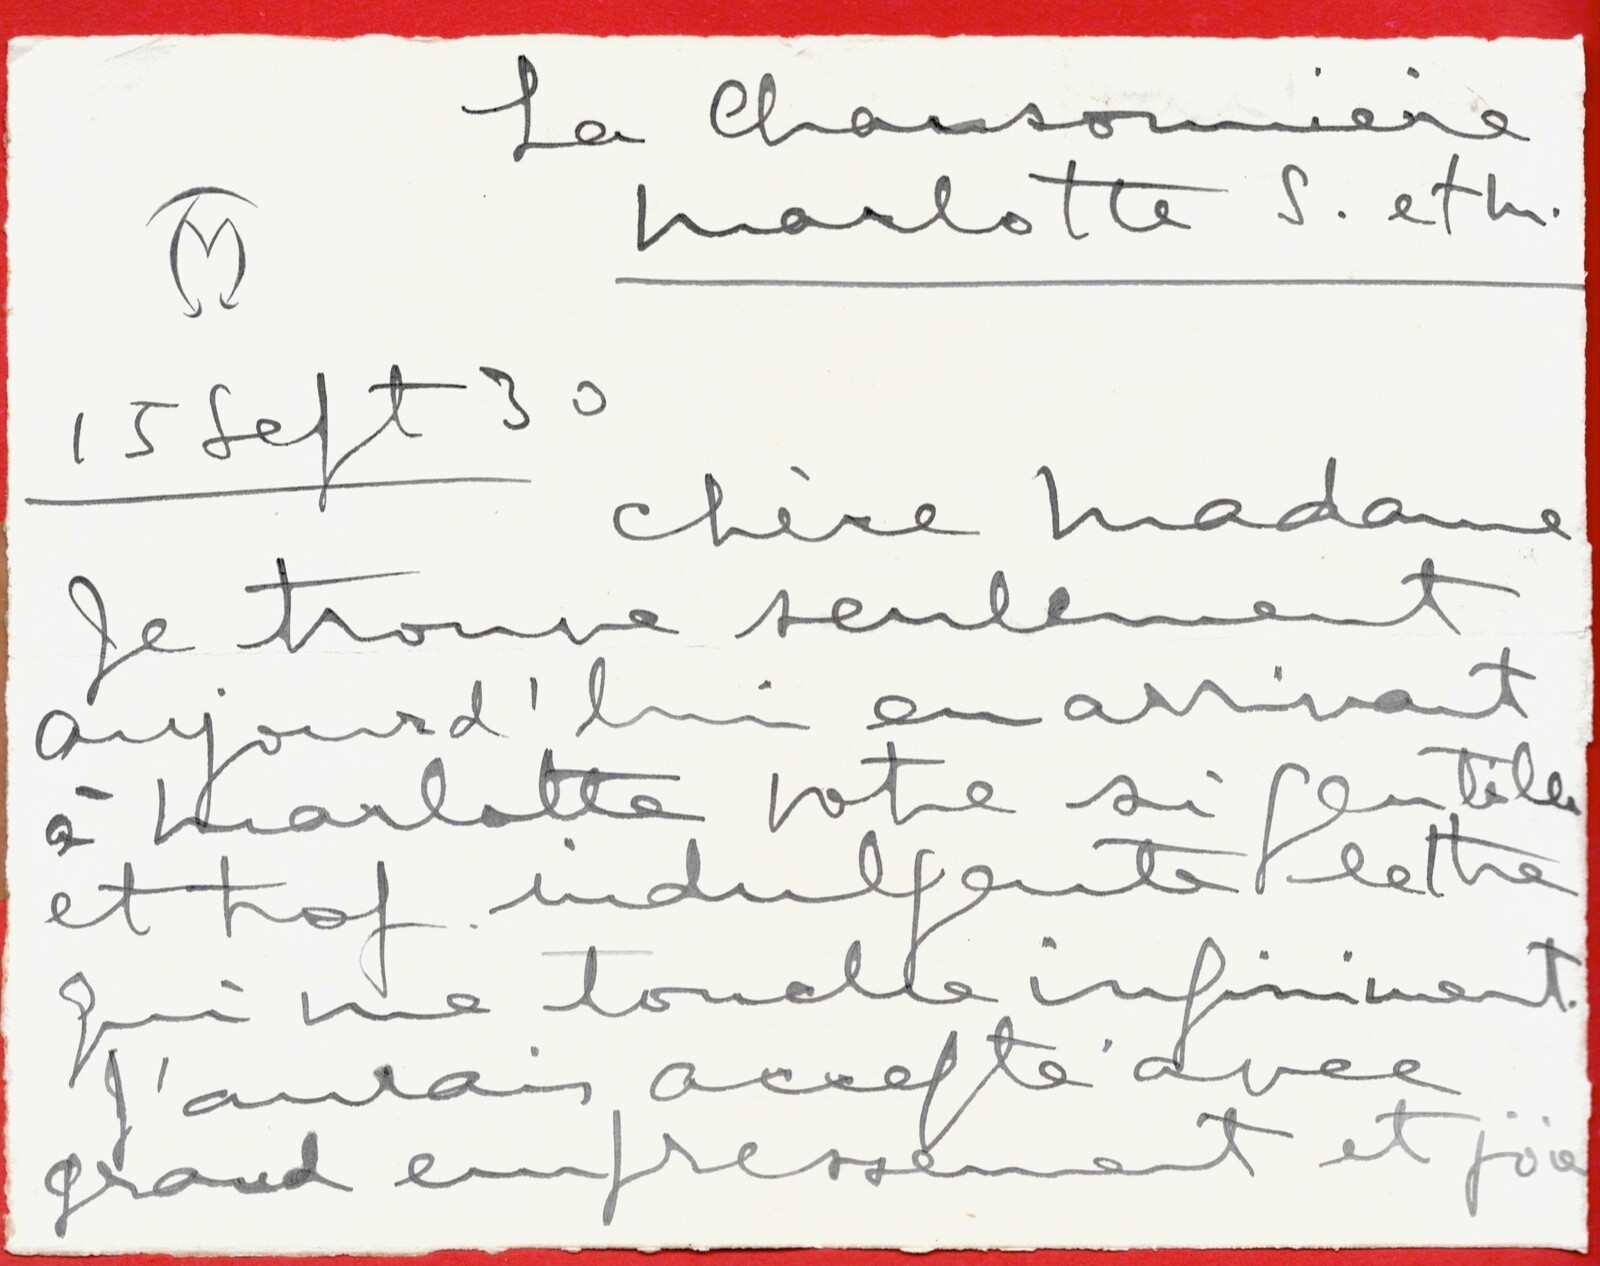 La Chansonnière
Marlotte S. et M.
15 Sept 30
Chère Madame
Je trouve seulement
aujourd'hui en arrivant
à Marlotte votre si gentille
et trop indulgente lettre
qui me touche infiniment.
J'aurais accepté avec
grand empressement et joie